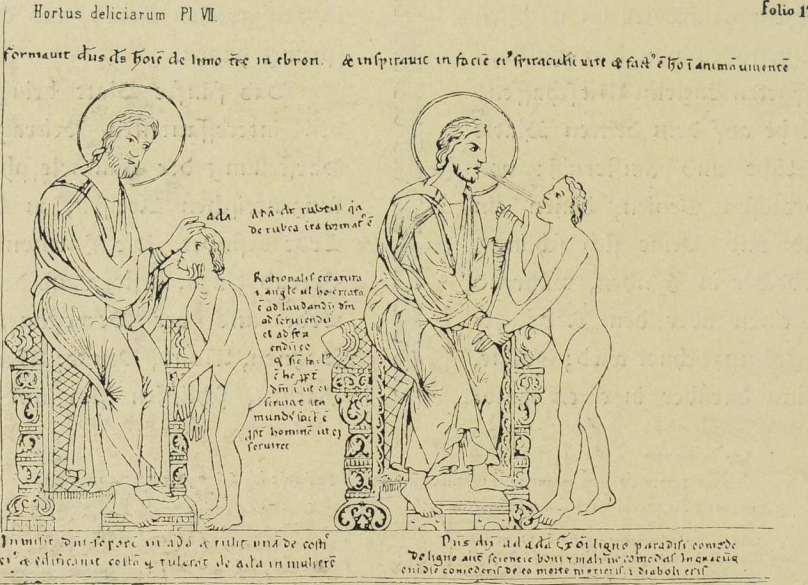 Hortus deliciarum Pl VII.
folio 1
formavit dns ds hoiē de limo tre in ebron. & inspiravit in faciē ei' spiraculū vite & fact' ē ho ī animā viventē
ada
Adā dr rubeus
de rubea trra format' ē
Rationalis creatura
ē ad laudandū dm
ad serviendū
ei
ē ho ppt
dm ut ei
serviat ita
mundus ē
ppt hominē ut ei
serviret
Inmisit dns soporē in adā & tulit unā de costis
ei' & edificavit costā quā tulerat de ada in mulierē
Dns ad adā ligno paradisi comede
De ligno aut scientie boni & mali ne comedas In quacūq
enī die comederis de eo morte morieris i diaboli eris